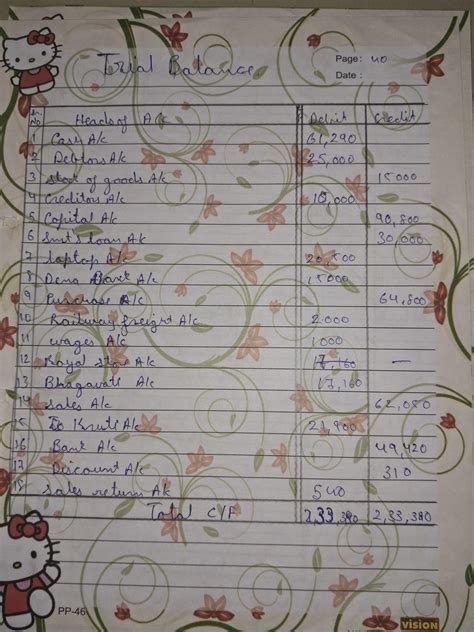 Trial Balance
Page: 40
Date :
Sr. No Heads of A/c Debit Credit
1 Cash A/c 31,290
2 Debtors A/c 25,000
3 stock of goods A/c 15000
4 creditors A/c 10,000
5 Capital A/c 90,800
6 loan A/c 30,000
7 laptop A/c 20,500
8 Dena Bank A/c 15000
9 Purchase A/c 64,800
10 Railway freight A/c 2000
11 wages A/c 1000
12 Royal stor A/c 17,160 —
13 Bhagavati A/c 17,160
14 Sales A/c 62,050
15 To Kruti A/c 21,900
16 Bank A/c 49,420
17 Discount A/c 310
18 Sales return A/c 540
Total C/F 2,33,380 2,33,380
PP-46
VISION